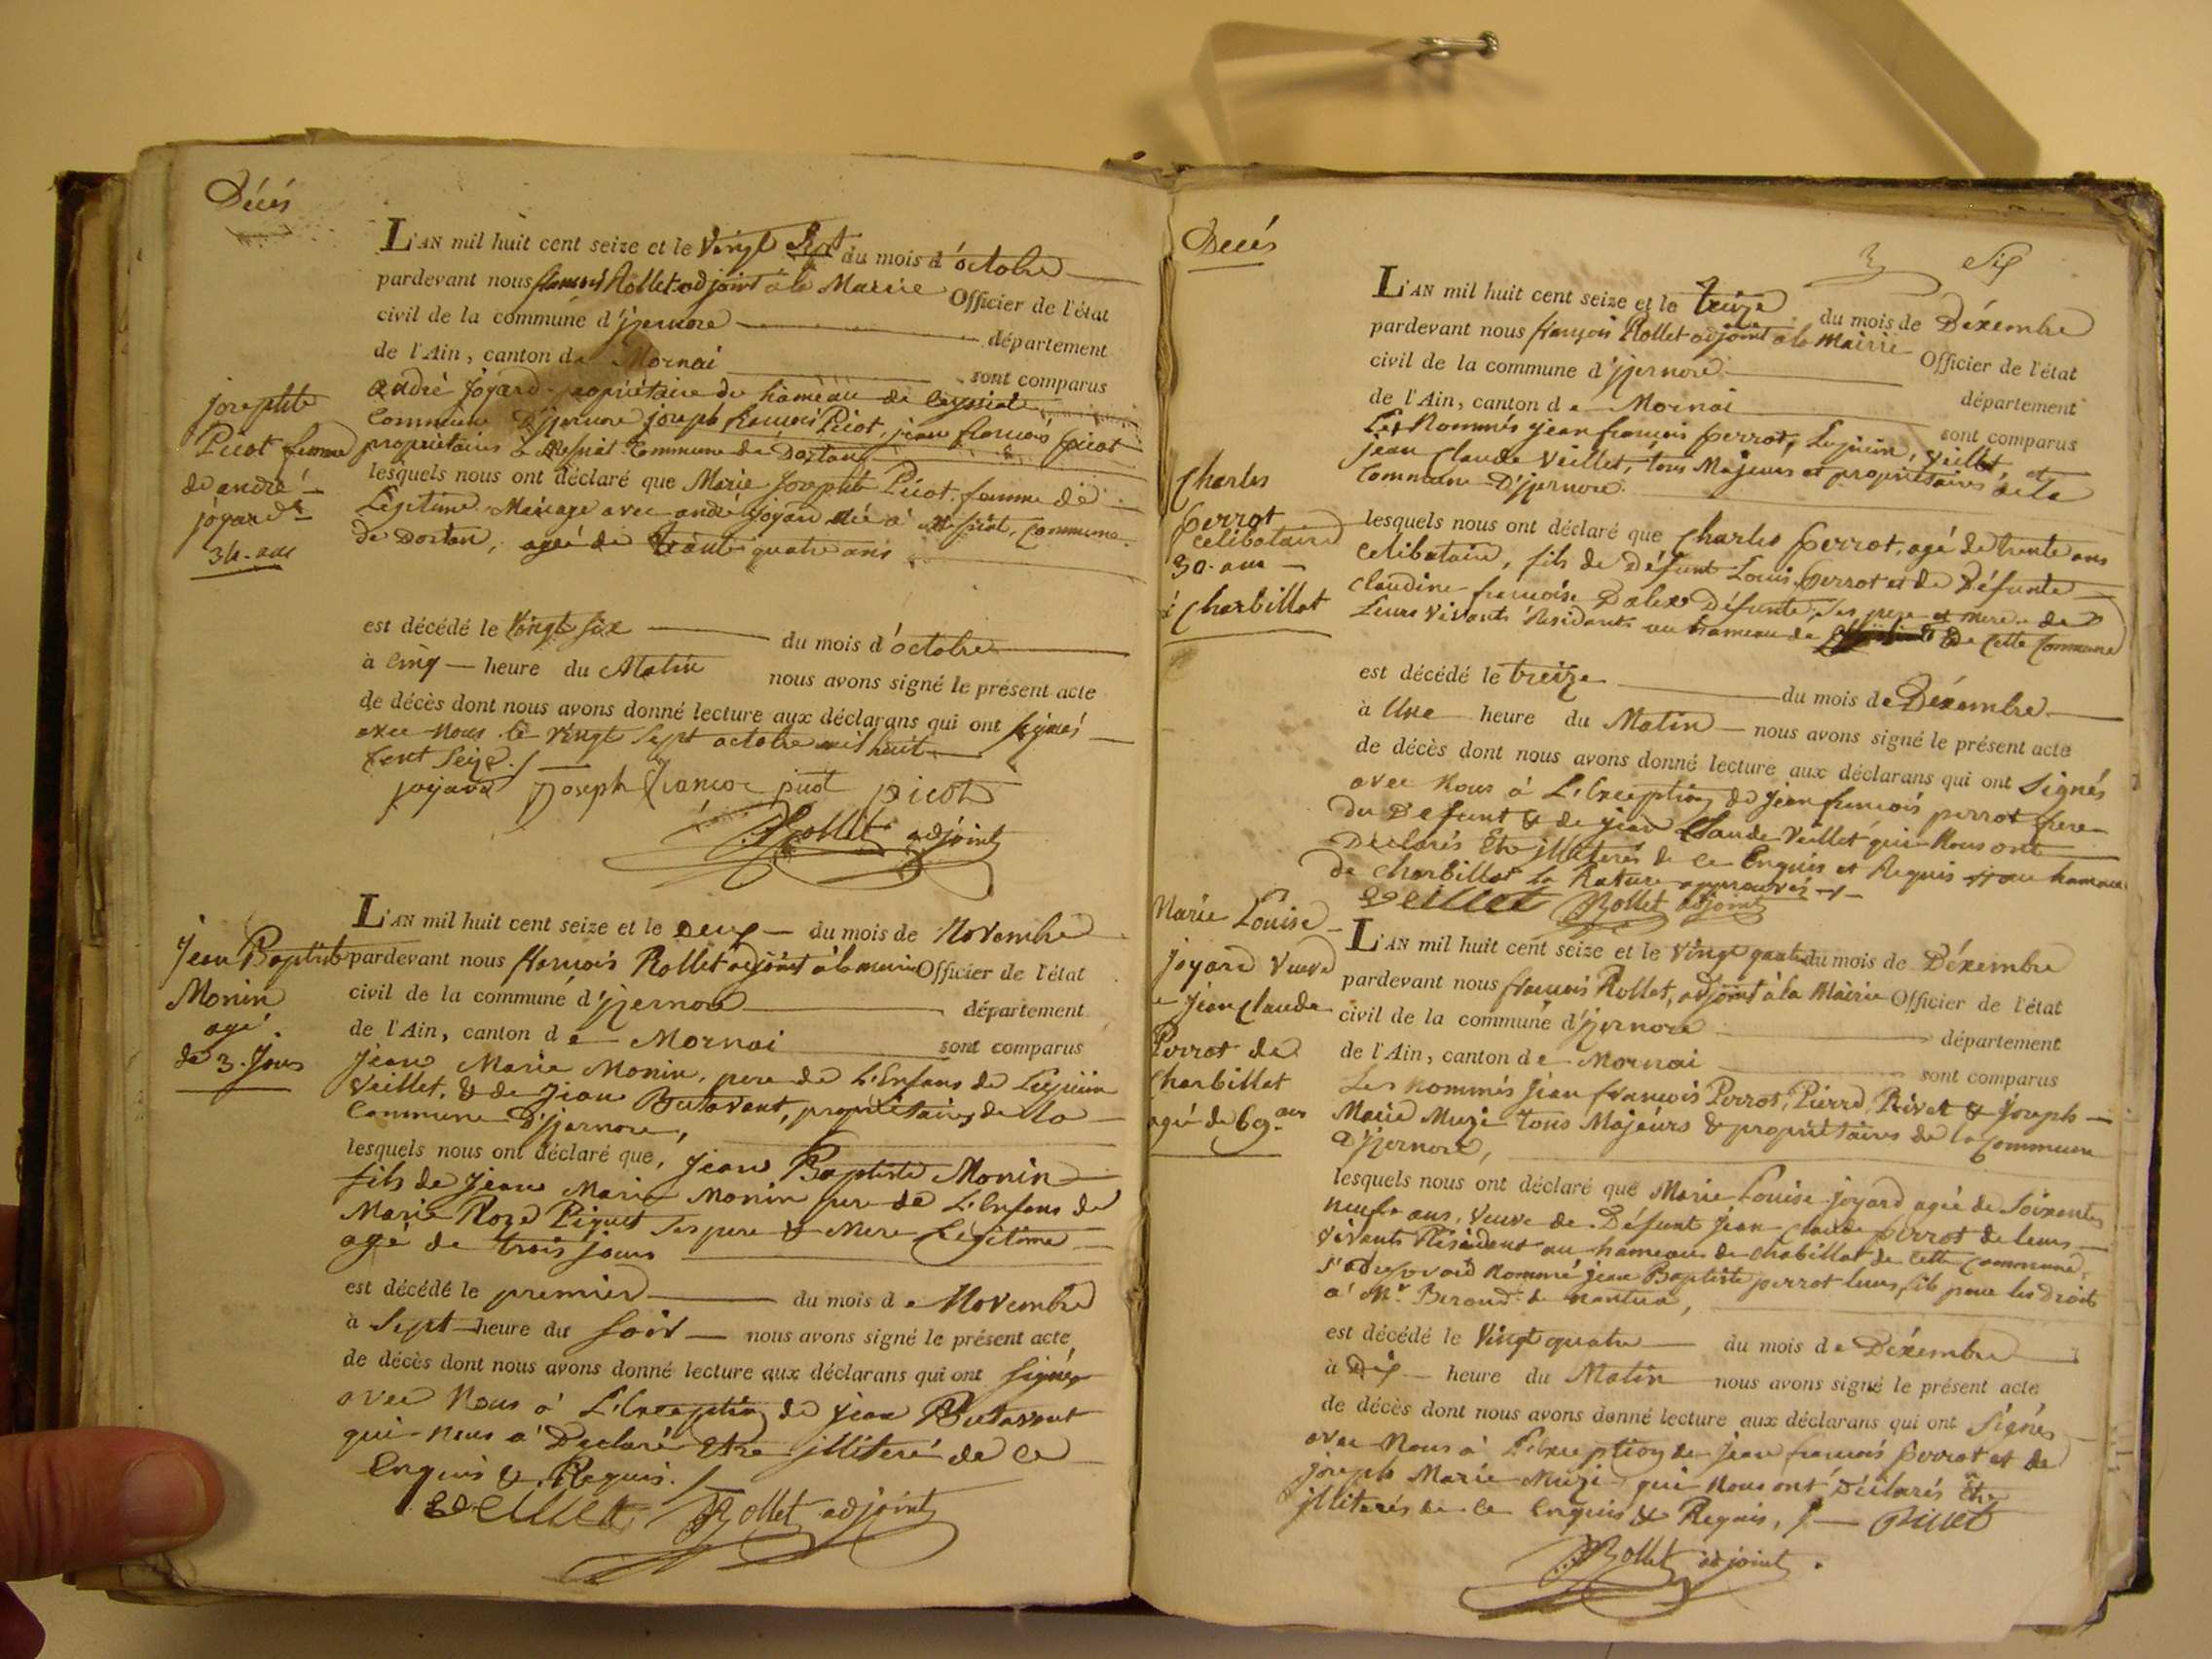 Décés
L'AN mil huit cent seize et le Vingt Sept du mois d'octobre
pardevant nous francois Rollet adjoint à la Mairie Officier de l'état
civil de la commune d'jzernore département
de l'Ain, canton de Mornai sont comparus
andré Joyard propriétaire du hameau de
Commune D'jzernore joseph francois Picot, jean francois picot
propriétaires à Commune de Dortan
lesquels nous ont déclaré que Marie Josephte Picot femme de
Légitime Mariage avec andré joyard née à Commune
de Dortan, agée de trente quatre ans
josephte
Picot femme
de andré
joyard
34. ans
est décédé le Vingt six du mois d'octobre
à Cinq heure du Matin nous avons signé le présent acte
de décès dont nous avons donné lecture aux déclarans qui ont signés
avec nous le vingt sept octobre mil huit
cent seize ./
joyard joseph francoi picot picot
Rollet adjoint
L'AN mil huit cent seize et le Deux du mois de Novembre
pardevant nous francois Rollet adjoint à la mairie Officier de l'état
civil de la commune d'jzernore département
de l'Ain, canton de Mornai sont comparus
jean Marie Monin, pere de L'Enfans de Lupicin
Veillet, & de jean Butavant, propriétaires de la
Commune D'jzernore,
lesquels nous ont déclaré que, jean Baptiste Monin
fils de jean Marie Monin pere de L'Enfans de
Marie Roze Piquet ses pere & Mere Légitime
agé de trois jours
Jean Baptiste
Monin
agé.
de 3. Jours
est décédé le premier du mois de Novembre
à Sept heure du Soir nous avons signé le présent acte
de décès dont nous avons donné lecture aux déclarans qui ont signés
avec Nous à L'Exception de jean Butavant
qui nous a Declaré Etre jlliteré de ce
Enquis & Requis. /
Veillet Rollet adjoint
Decés
Six
L'AN mil huit cent seize et le treize du mois de Déxembre
pardevant nous françois Rollet adjoint à la Mairie Officier de l'état
civil de la commune d'jzernore département
de l'Ain, canton de Mornai sont comparus
Les Nommés jean francois perrot, Lupicin, Veillet et
jean Claude Veillet, tous Majeurs et propriétaires de la
Commune D'jzernore.
lesquels nous ont déclaré que Charles perrot, agé de trente ans
Celibataire, fils de Défunt Louis perrot et de Défunte
Claudine francoise Dalex Défunte, ses pere et mere de
Leurs vivants Résidants au hameau de de Cette Commune
Charles
perrot
celibataire
30. ans
à Charbillat
est décédé le treize du mois de Déxembre
à Une heure du Matin nous avons signé le présent acte
de décès dont nous avons donné lecture aux déclarans qui ont Signés
avec Nous à L'Exception de jean francois perrot frere
du Defunt & de jean Claude Veillet qui Nous ont
Declarés Etre jlliterés de ce Enquis et Requis au hameau
de Charbillat la Rature approuvés
Veillet Rollet adjoint
L'AN mil huit cent seize et le vingt quatre du mois de Déxembre
pardevant nous francois Rollet, adjoint à la Mairie Officier de l'état
civil de la commune d'jzernore département
de l'Ain, canton de Mornai sont comparus
Les nommés jean francois Perrot, Pierre Rivet & joseph
Marie Muzi tous Majeurs & propriétaires de la Commune
D'jzernore,
lesquels nous ont déclaré que Marie Louise joyard agée de Soixante
neuf ans, Veuve de Défunt jean Claude perrot de leurs
vivants Résidant au hameau de Chabillat de cette Commune,
nommé jean Baptiste perrot leurs fils pour les Droits
a Mr. Beroud de nantua,
Marie Louise
joyard Veuve
de jean Claude
Perrot de
Charbillat
agée de 69. ans
est décédé le Vingt quatre du mois de Déxembre
à Dix heure du Matin nous avons signé le présent acte
de décès dont nous avons donné lecture aux déclarans qui ont Signés
avec Nous à L'Exception de jean francois perrot et de
joseph Marie Muzi qui Nous ont Déclarés Etre
jlliterés de ce Enquis & Requis, /. Rivet
Rollet adjoint.